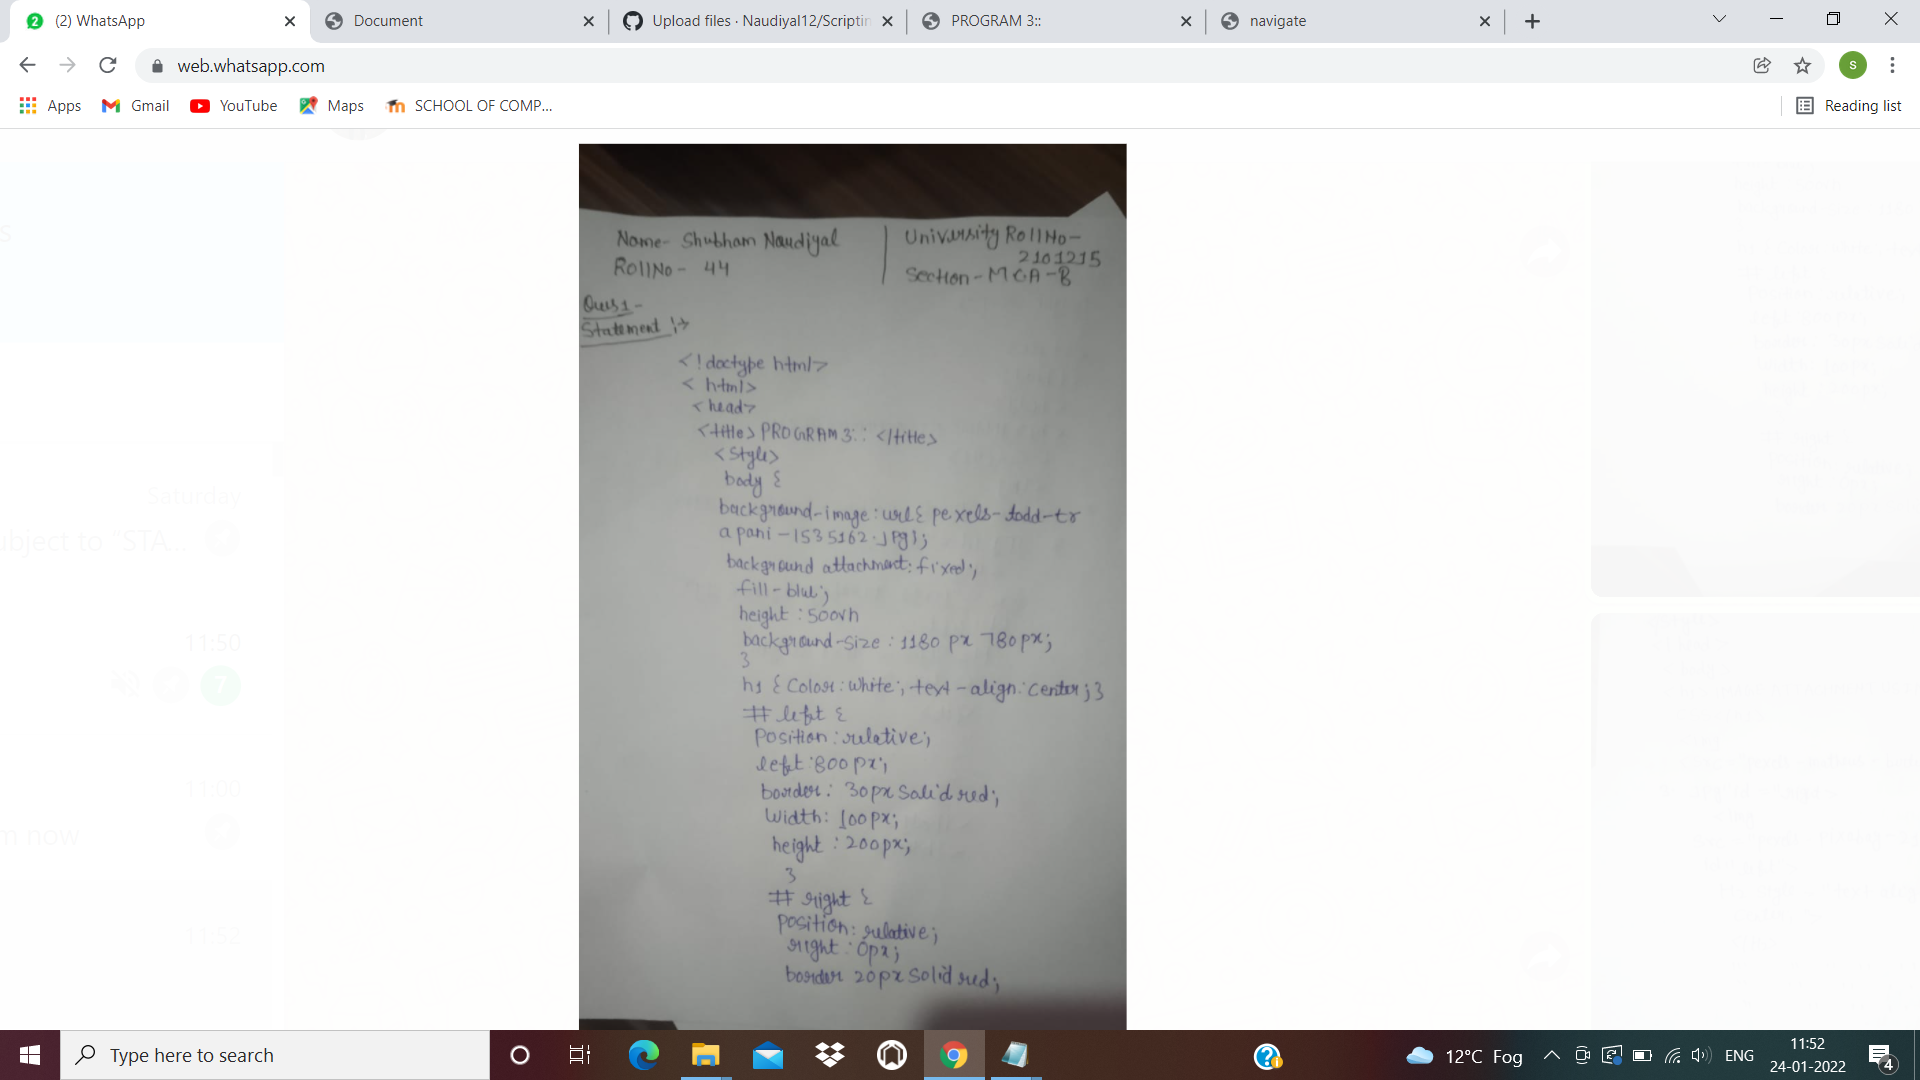 (2) WhatsApp
Document
Upload files · Naudiyal12/Scriptin
PROGRAM 3::
navigate
web.whatsapp.com
S
Apps
Gmail
YouTube
Maps
SCHOOL OF COMP...
Reading list
Name- Shubham Naudiyal
University RollNo-
2101215
RollNo- 44
Section-MCA-B
Ques1-
Statement :→
<!doctype html>
< html>
<head>
<title> PROGRAM 3:: </title>
<style>
body {
background-image: url{ pexels-todd-tr
apani-1535162.jpg};
background attachment: fixed;
fill-blue;
height : 500vh
background-size : 1180 px 780px;
}
h1 { Color: white; text-align: center; }
# left {
Position: relative;
left: 800px;
border: 30px solid red;
Width: 100px;
height : 200px;
}
# right {
Position: relative;
right : 0px;
border 20px solid red;
Saturday
ubject to "STA...
11:50
7
11:00
m now
11:52
Type here to search
12°C Fog
ENG
11:52
24-01-2022
4